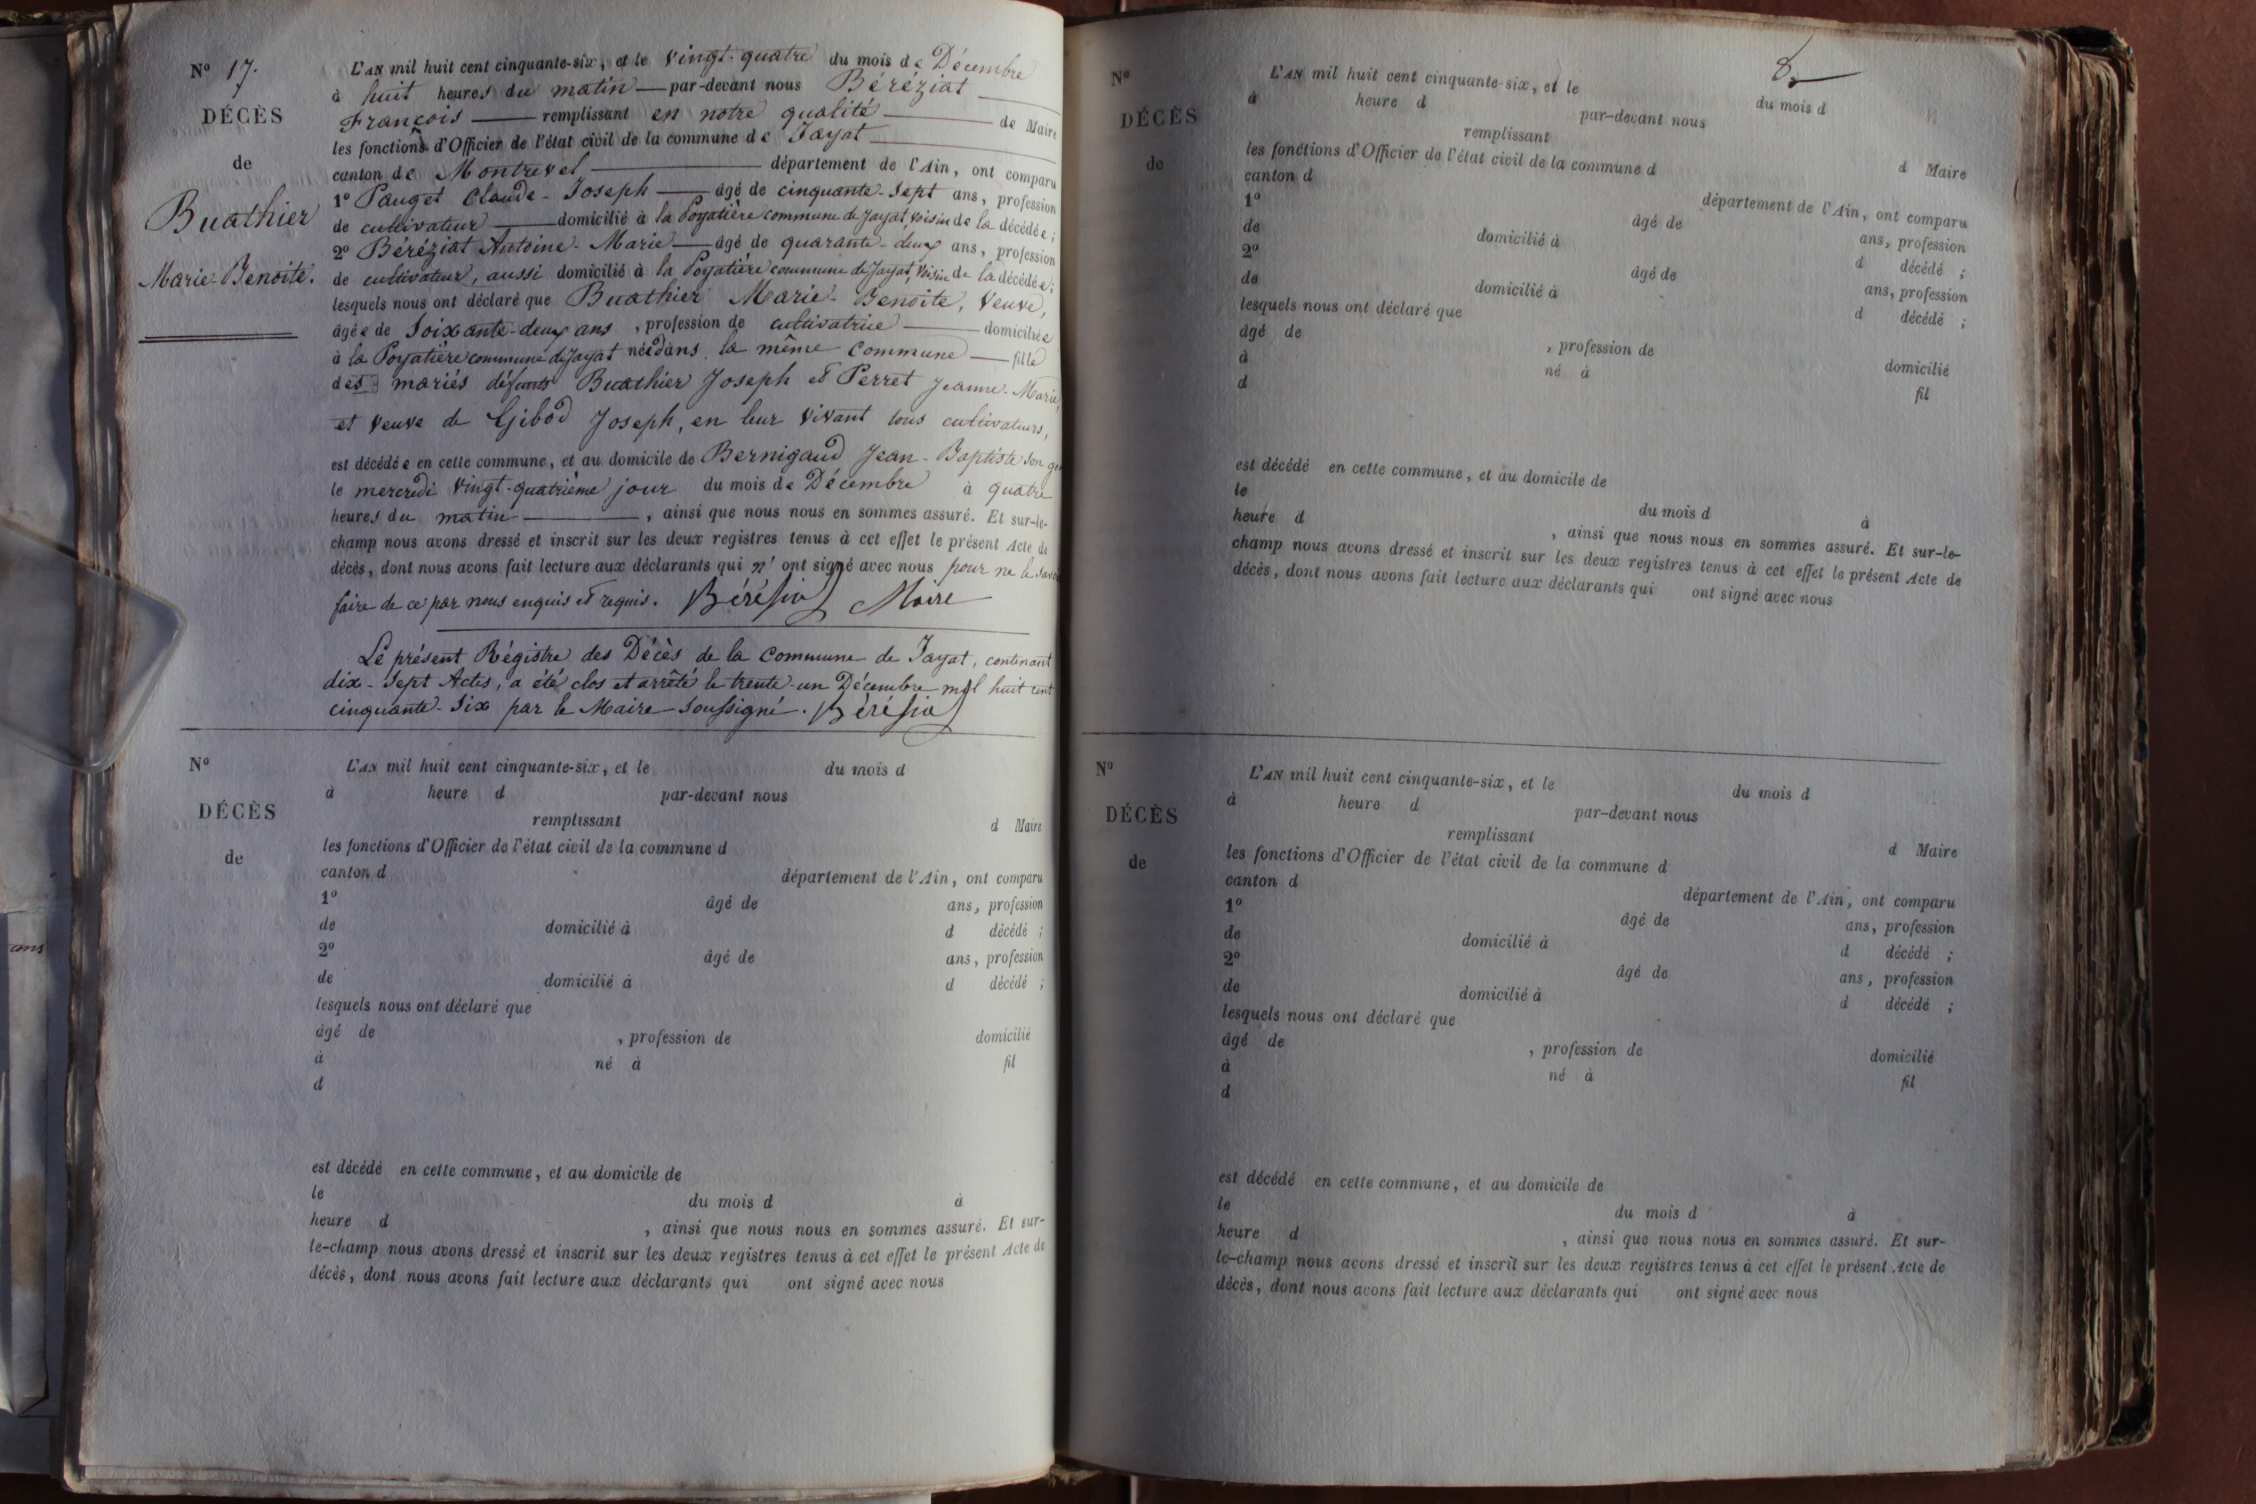 Nº 17.
DÉCÈS
de
Buathier
Marie-Benoite.
L'AN mil huit cent cinquante-six, et le vingt-quatre du mois de Décembre
à huit heures du matin par-devant nous Béréziat
François remplissant en notre qualité de Maire
les fonctions d'Officier de l'état civil de la commune de Jayat
canton de Montrevel département de l'Ain, ont comparu
1º Pauget Claude-Joseph âgé de cinquante-sept ans, profession
de cultivateur domicilié à la Poyatière commune de Jayat, voisin de la décédée ;
2º Béréziat Antoine-Marie âgé de quarante-deux ans, profession
de cultivateur, aussi domicilié à la Poyatière commune de Jayat, voisin de la décédée ;
lesquels nous ont déclaré que Buathier Marie-Benoite, veuve,
âgée de soixante-deux ans, profession de cultivatrice domiciliée
à la Poyatière commune de Jayat née dans la même commune fille
des mariés défunts Buathier Joseph et Perret Jeanne-Marie,
et veuve de Gibod Joseph, en leur vivant tous cultivateurs,
est décédée en cette commune, et au domicile de Bernigaud Jean-Baptiste son
le mercredi vingt-quatrième jour du mois de Décembre à quatre
heures du matin, ainsi que nous nous en sommes assuré. Et sur-le-
champ nous avons dressé et inscrit sur les deux registres tenus à cet effet le présent Acte de
décès, dont nous avons fait lecture aux déclarants qui n'ont signé avec nous pour ne le savoir
faire de ce par nous enquis et requis. Bérésiat Maire
Le présent Régistre des Décès de la commune de Jayat, contenant
dix-sept Actes, a été clos et arrêté le trente-un Décembre mil huit cent
cinquante-six par le Maire soussigné. Bérésiat
Nº
DÉCÈS
de
L'AN mil huit cent cinquante-six, et le du mois d
à heure d par-devant nous
remplissant d Maire
les fonctions d'Officier de l'état civil de la commune d
canton d département de l'Ain, ont comparu
1º âgé de ans, profession
de domicilié à d décédé ;
2º âgé de ans, profession
de domicilié à d décédé ;
lesquels nous ont déclaré que
âgé de , profession de domicilié
à né à fil
d
est décédé en cette commune, et au domicile de
le du mois d à
heure d , ainsi que nous nous en sommes assuré. Et sur-
le-champ nous avons dressé et inscrit sur les deux registres tenus à cet effet le présent Acte de
décès, dont nous avons fait lecture aux déclarants qui ont signé avec nous
ans
8
Nº
DÉCÈS
de
L'AN mil huit cent cinquante-six, et le du mois d
à heure d par-devant nous
remplissant d Maire
les fonctions d'Officier de l'état civil de la commune d
canton d département de l'Ain, ont comparu
1º âgé de ans, profession
de domicilié à d décédé ;
2º âgé de ans, profession
de domicilié à d décédé ;
lesquels nous ont déclaré que
âgé de , profession de domicilié
à né à fil
d
est décédé en cette commune, et au domicile de
le du mois d à
heure d , ainsi que nous nous en sommes assuré. Et sur-le-
champ nous avons dressé et inscrit sur les deux registres tenus à cet effet le présent Acte de
décès, dont nous avons fait lecture aux déclarants qui ont signé avec nous
Nº
DÉCÈS
de
L'AN mil huit cent cinquante-six, et le du mois d
à heure d par-devant nous
remplissant d Maire
les fonctions d'Officier de l'état civil de la commune d
canton d département de l'Ain, ont comparu
1º âgé de ans, profession
de domicilié à d décédé ;
2º âgé de ans, profession
de domicilié à d décédé ;
lesquels nous ont déclaré que
âgé de , profession de domicilié
à né à fil
d
est décédé en cette commune, et au domicile de
le du mois d à
heure d , ainsi que nous nous en sommes assuré. Et sur-
le-champ nous avons dressé et inscrit sur les deux registres tenus à cet effet le présent Acte de
décès, dont nous avons fait lecture aux déclarants qui ont signé avec nous